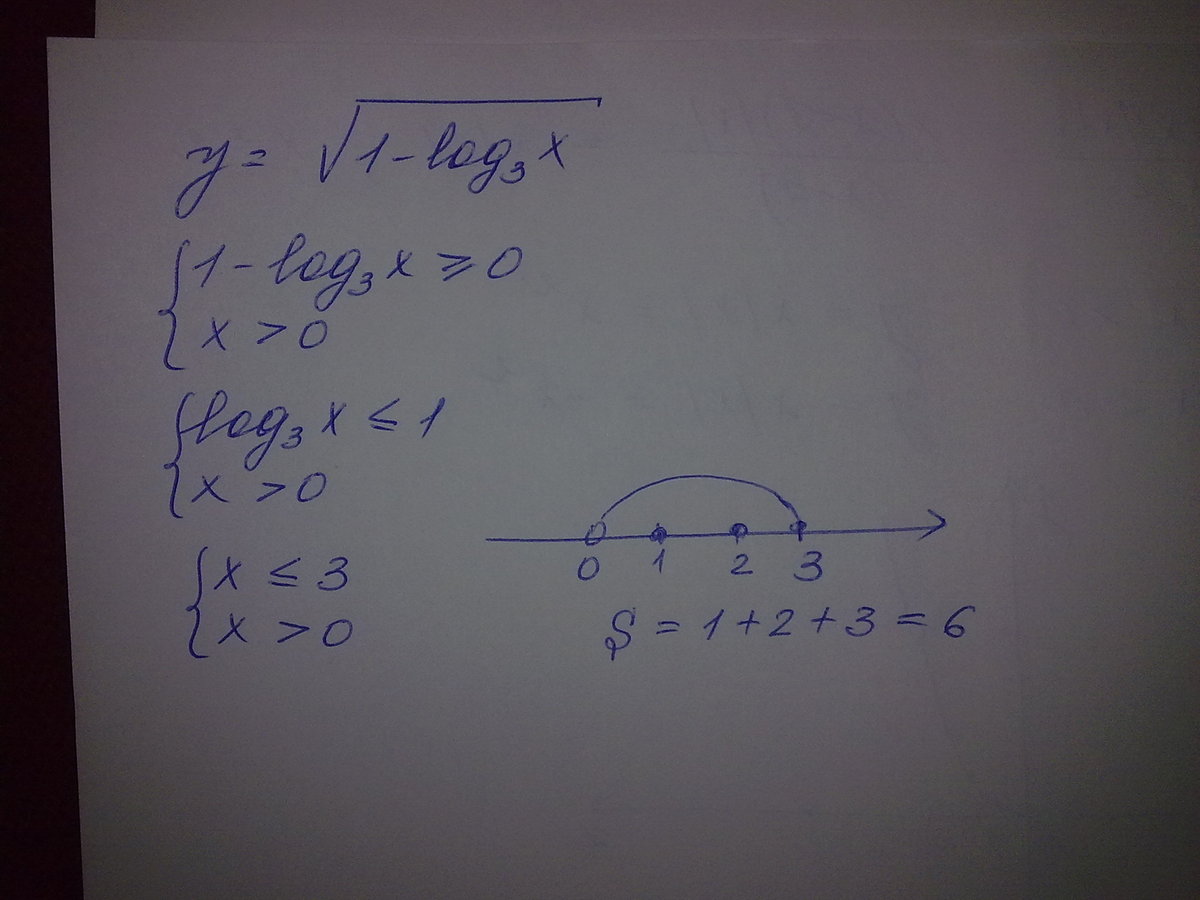 y = √(1 - log₃ x)
{ 1 - log₃ x ≥ 0
x > 0
{ log₃ x ≤ 1
x > 0
{ x ≤ 3
x > 0
0 1 2 3
S = 1 + 2 + 3 = 6